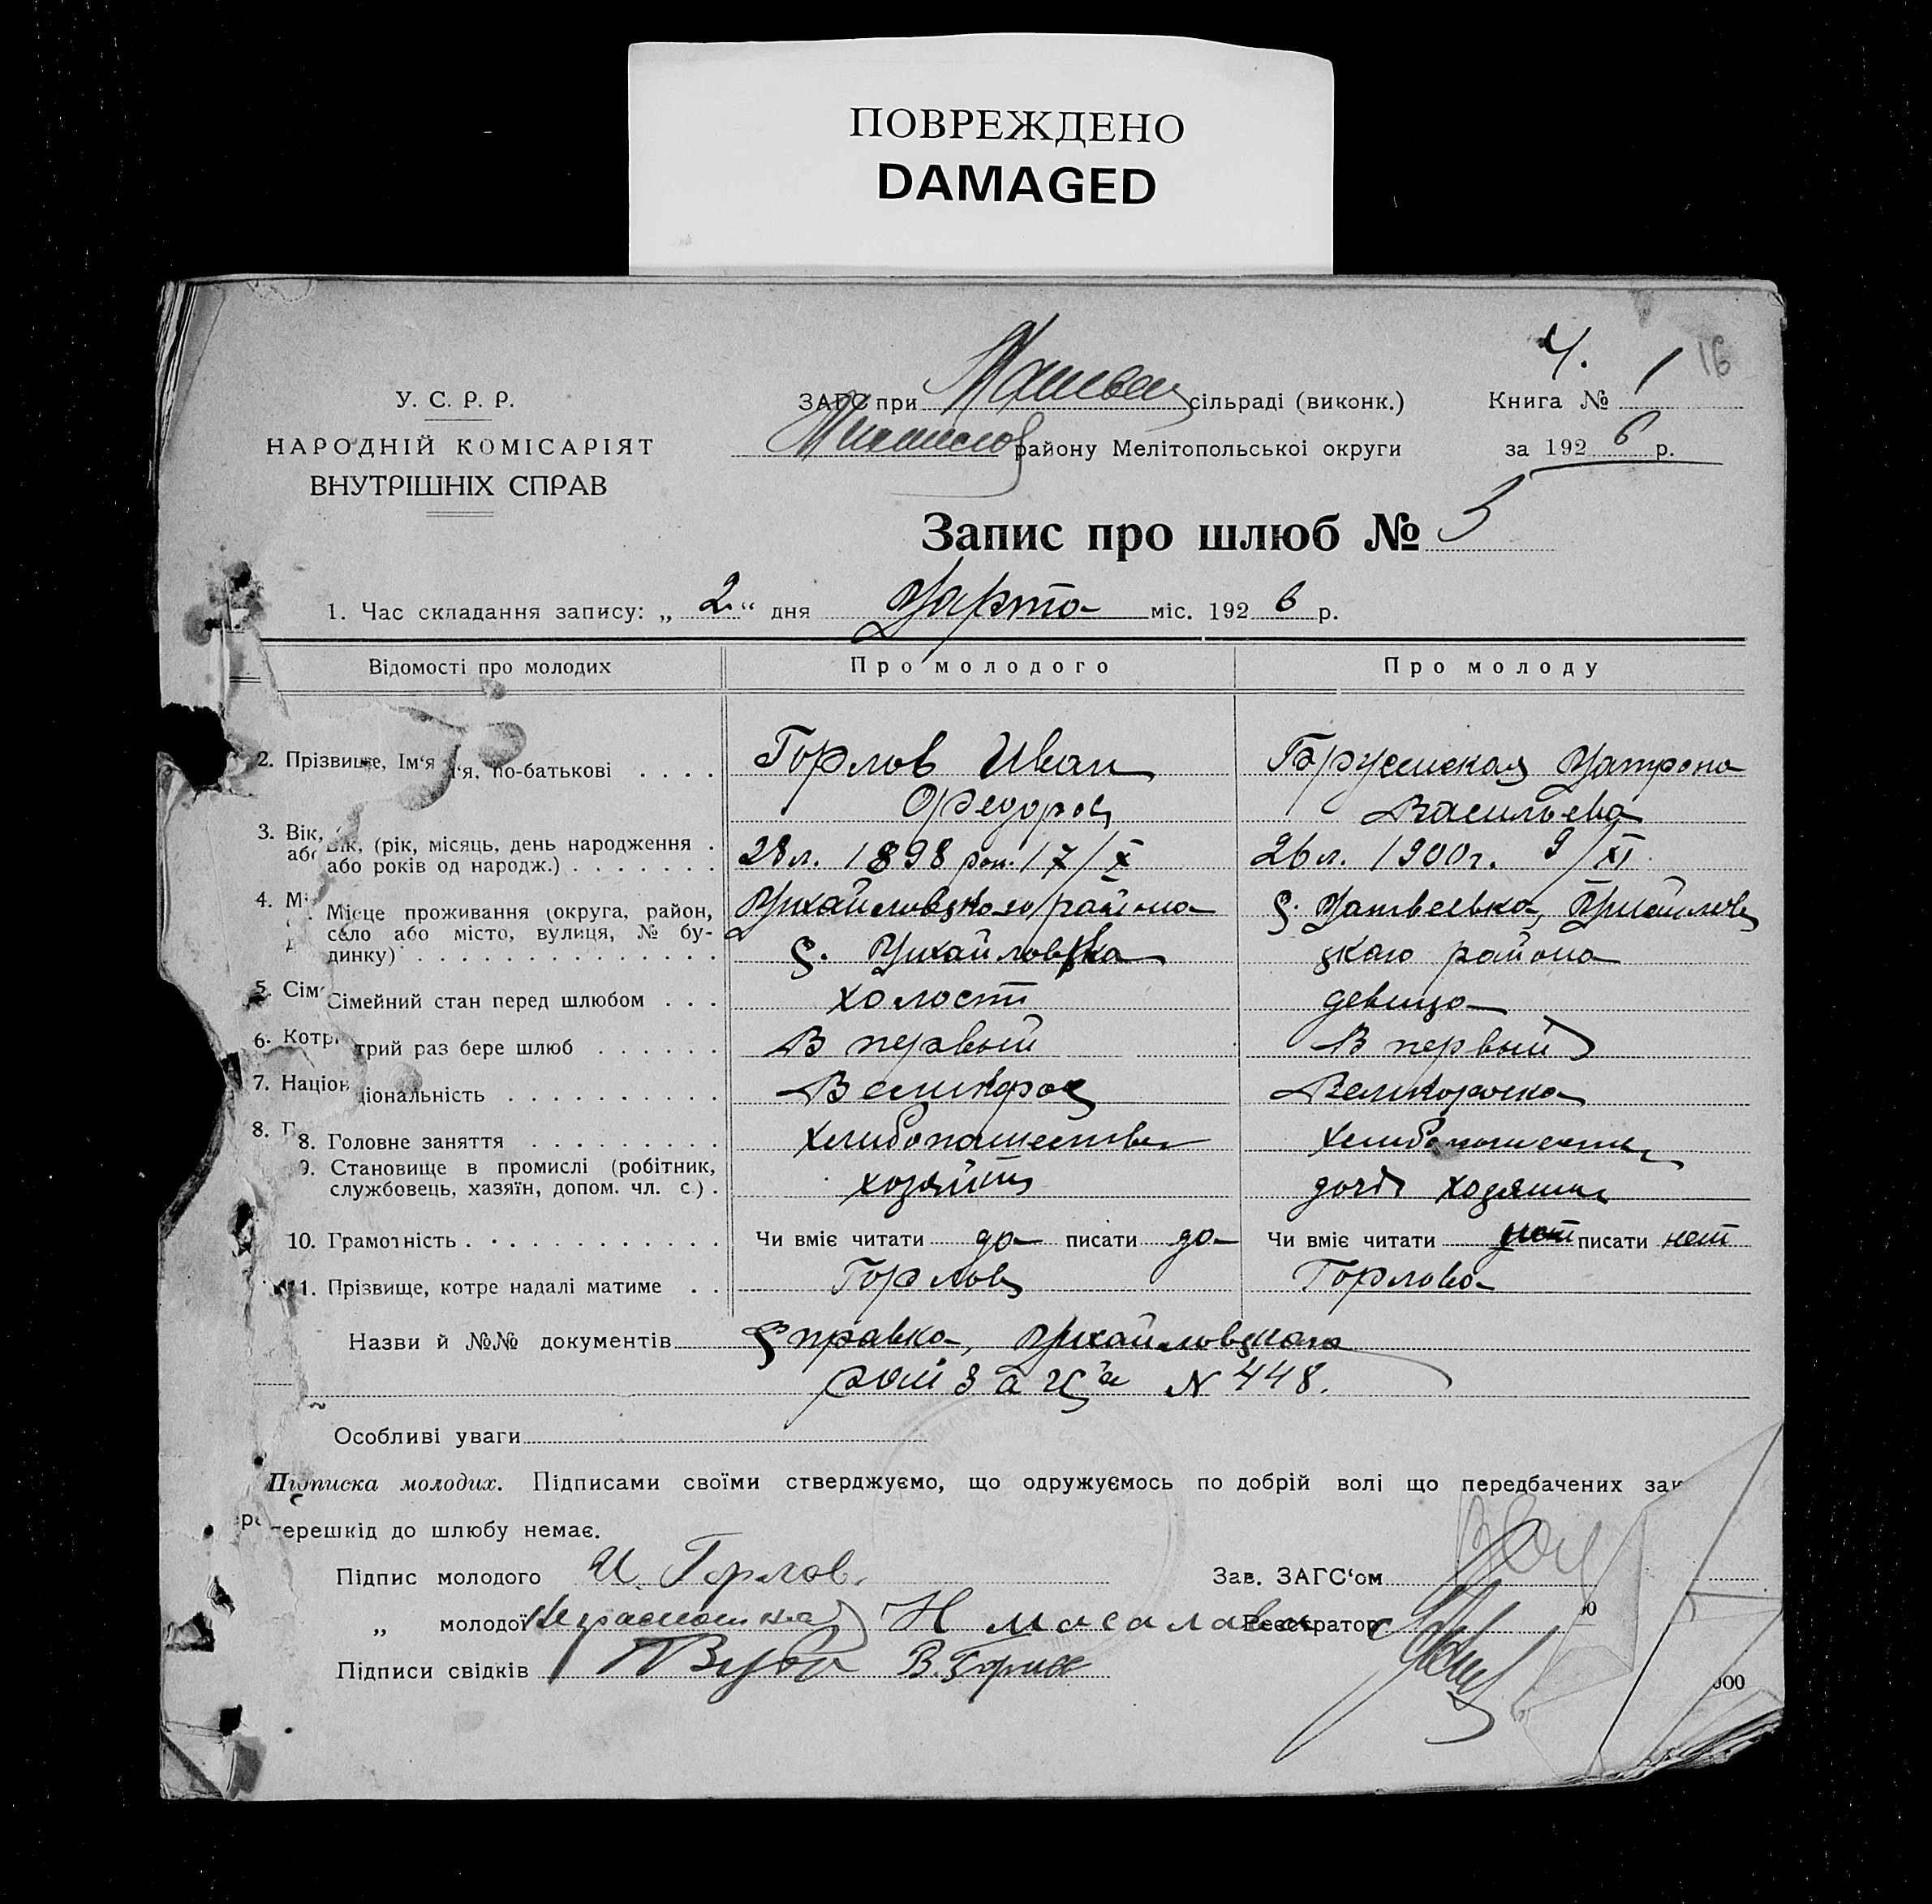 ПОВРЕЖДЕНО
DAMAGED
Ч. 16
У. С. Р. Р. ЗАГС при сільраді (виконк.) Книга № 1
НАРОДНІЙ КОМІСАРІЯТ району Мелітопольської округи за 1926 р.
ВНУТРІШНІХ СПРАВ
Запис про шлюб №
1. Час складання запису: „ 2 “ дня Марта міс. 1926 р.
Відомості про молодих Про молодого Про молоду
2. Прізвище, Ім‘я ‘я, по-батькові . . . . Горлов Иван Матрона
Федоров Васильева
3. Вік, Вік, (рік, місяць, день народження .
або або років од народж.) . . . . . . . 28 л. 1898 рож. 17/X 26 л. 1900 г. 9/XI
4. Місце проживання (округа, район, Михайловского района с. Матвеевка, Михайлов
село або місто, вулиця, № бу-
динку) . . . . . . . . . . . . . с. Михайловка ского района
5. Сім Сімейний стан перед шлюбом . . . холост девица
6. Котр трий раз бере шлюб . . . . . . В первый В первый
7. Націон ціональність . . . . . . . . . . Великорос Великороска
8. Г 8. Головне заняття . . . . . . . . .
9. Становище в промислі (робітник,
службовець, хазяїн, допом. чл. с.) . дочь
10. Грамотність . . . . . . . . . . . . Чи вміє читати да писати да Чи вміє читати нет писати нет
11. Прізвище, котре надалі матиме . . Горлов Горлова
Назви й №№ документів Справка, Михайловского
рай N 448.
Особливі уваги
Підписка молодих. Підписами своїми стверджуємо, що одружуємось по добрій волі що передбачених зак
перешкід до шлюбу немає.
Підпис молодого И. Горлов. Зав. ЗАГС‘ом
„ молодої неграмотна Реєстратор
Підписи свідків
000